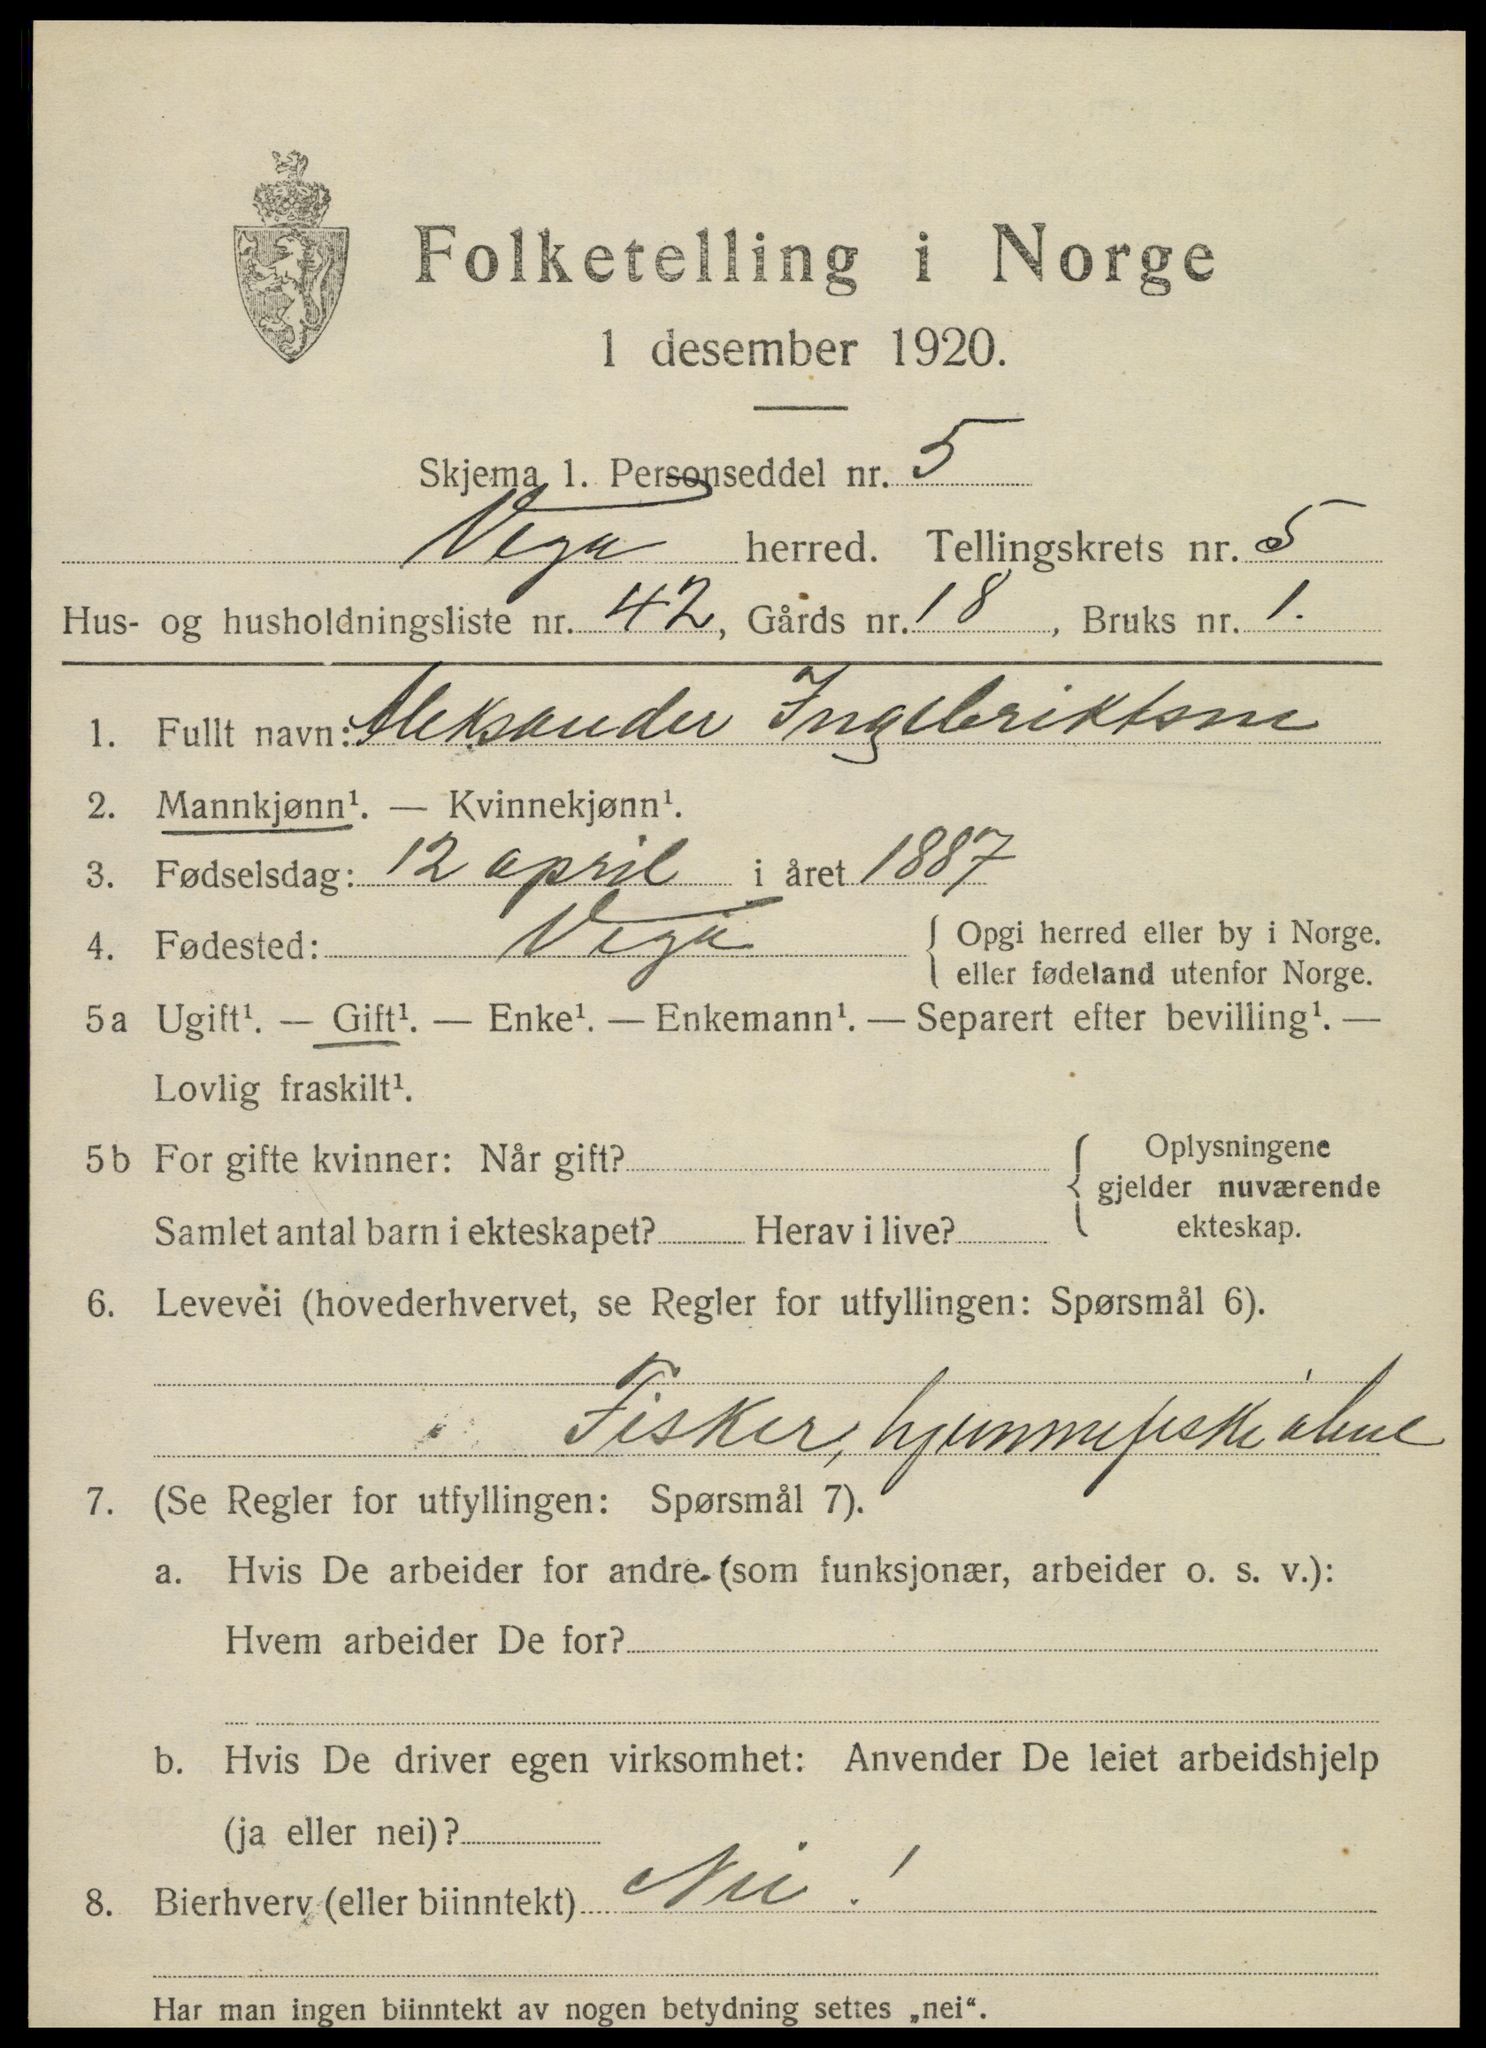 Folketelling i Norge
1 desember 1920.
Skjema 1. Personseddel nr. 5
Vega herred. Tellingskrets nr. 5
Hus- og husholdningsliste nr. 42, Gårds nr. 18, Bruks nr. 1.
1. Fullt navn: Aleksander Ingebriktsen
2. Mannkjønn¹. — Kvinnekjønn¹.
3. Fødselsdag: 12 april i året 1887
4. Fødested: Vega { Opgi herred eller by i Norge.
eller fødeland utenfor Norge.
5a Ugift¹. — Gift¹. — Enke¹. — Enkemann¹. — Separert efter bevilling¹. —
Lovlig fraskilt¹.
5b For gifte kvinner: Når gift? { Oplysningene
gjelder nuværende
Samlet antal barn i ekteskapet? Herav i live? ekteskap.
6. Levevei (hovederhvervet, se Regler for utfyllingen: Spørsmål 6).
Fisker, hjemmefiske alene
7. (Se Regler for utfyllingen: Spørsmål 7).
a. Hvis De arbeider for andre (som funksjonær, arbeider o. s. v.):
Hvem arbeider De for?
b. Hvis De driver egen virksomhet: Anvender De leiet arbeidshjelp
(ja eller nei)?
8. Bierhverv (eller biinntekt) Nei!
Har man ingen biinntekt av nogen betydning settes „nei“.